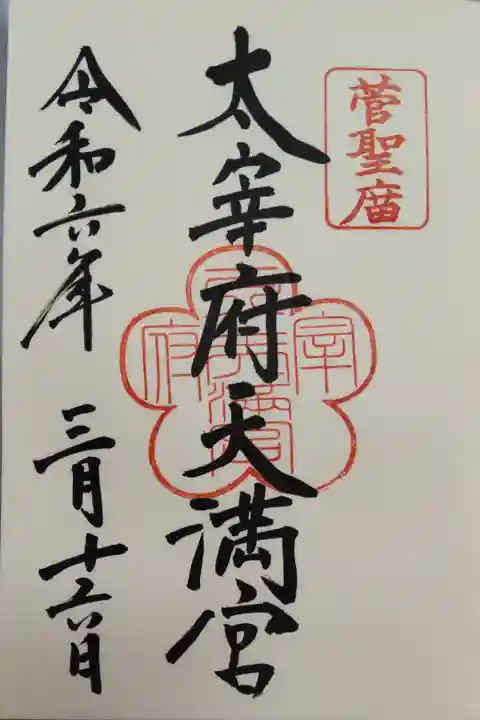 菅聖庿
太宰府天満宮
令和六年 三月十六日